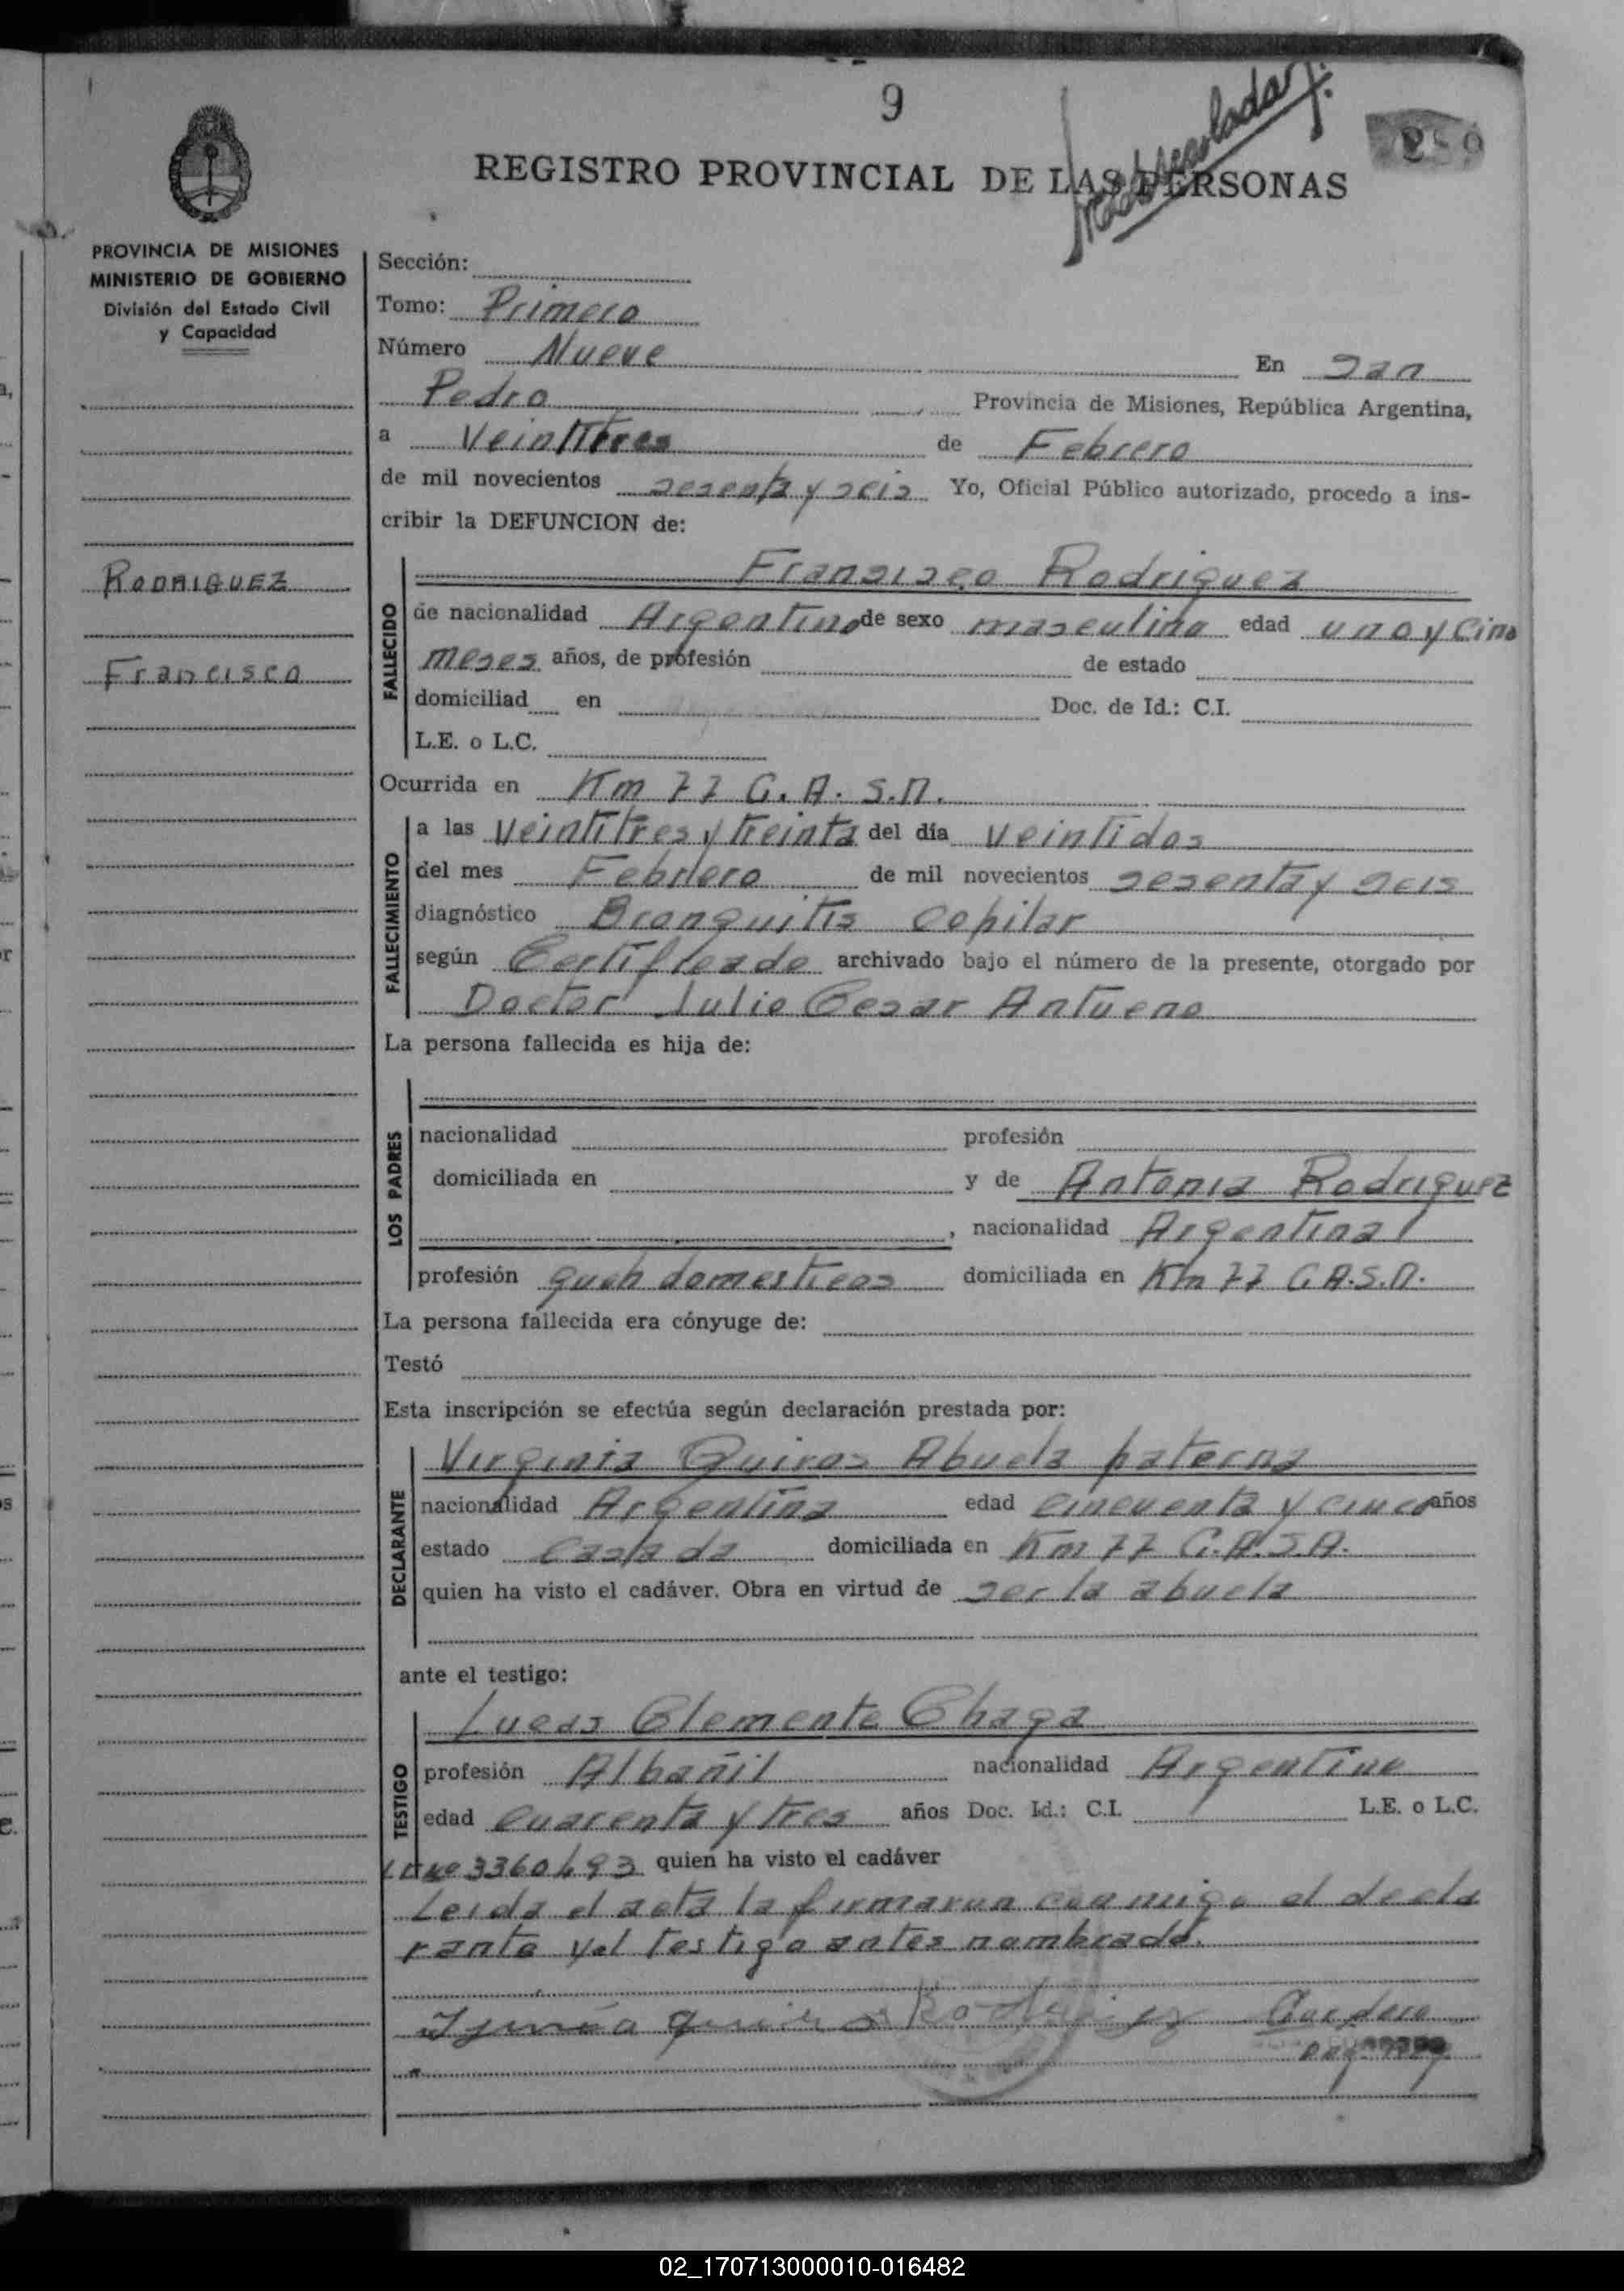 9
REGISTRO PROVINCIAL DE LAS PERSONAS
PROVINCIA DE MISIONES
MINISTERIO DE GOBIERNO
División del Estado Civil
y Capacidad
RODRIGUEZ
Francisco
Sección:
Tomo: Primero
Número Nueve En San
Pedro Provincia de Misiones, República Argentina,
a Veintitres de Febrero
de mil novecientos sesenta y seis Yo, Oficial Público autorizado, procedo a ins-
cribir la DEFUNCION de:
FALLECIDO
Francisco Rodriguez
de nacionalidad Argentino de sexo masculino edad uno y Cinc
meses años, de profesión de estado
domiciliad en Doc. de Id.: C.I.
L.E. o L.C.
Ocurrida en Km 77 C.A.S.A.
FALLECIMIENTO
a las Veintitres y treinta del día veintidos
del mes Febrero de mil novecientos sesenta y seis
diagnóstico Bronquitis Copilar
según Certificado archivado bajo el número de la presente, otorgado por
Doctor Julio Cesar
La persona fallecida es hija de:
LOS PADRES
nacionalidad profesión
domiciliada en y de Antonia Rodriguez
, nacionalidad Argentina
profesión queh domesticos domiciliada en Km 77 C.A.S.A.
La persona fallecida era cónyuge de:
Testó
Esta inscripción se efectúa según declaración prestada por:
DECLARANTE
Virginia Quiros Abuela paterna
nacionalidad Argentina edad cincuenta y cinco años
estado Casada domiciliada en Km 77 C.A.S.A.
quien ha visto el cadáver. Obra en virtud de ser la abuela
ante el testigo:
TESTIGO
Lucas Clemente Chaga
profesión Albañil nacionalidad Argentino
edad cuarenta y tres años Doc. Id.: C.I. L.E. o L.C.
3360493 quien ha visto el cadáver
Leida el acta la firmaron conmigo el decla
rante y el testigo antes nombrado.
02_170713000010-016482